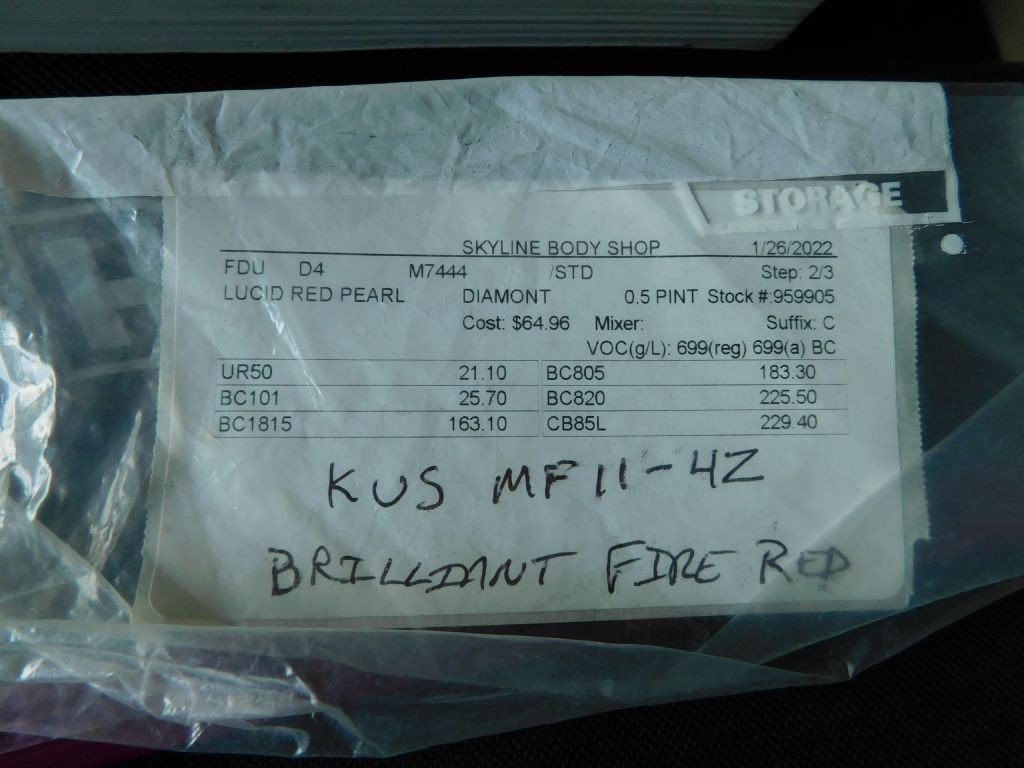 STORAGE
SKYLINE BODY SHOP 1/26/2022
FDU D4 M7444 /STD Step: 2/3
LUCID RED PEARL DIAMONT 0.5 PINT Stock #:959905
Cost: $64.96 Mixer: Suffix: C
VOC(g/L): 699(reg) 699(a) BC
UR50 21.10 BC805 183.30
BC101 25.70 BC820 225.50
BC1815 163.10 CB85L 229.40
KUS MF11-4Z
BRILLIANT FIRE RED